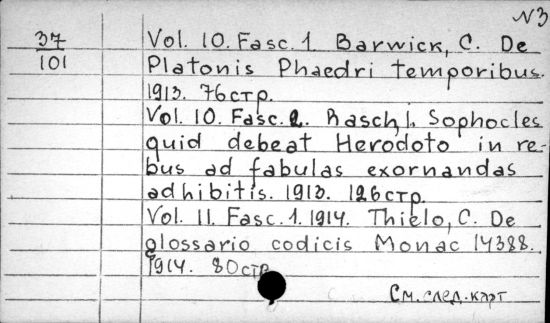 N3
37 Vol. 10. Fasc. 1. Barwick, C. De
101 Platonis Phaedri temporibus.
1913. 76стр.
Vol. 10. Fasc. 2. Rasch, I. Sophocles
quid debeat Herodoto in re-
bus ad fabulas exornandas
adhibitis. 1913. 126стр.
Vol. 11. Fasc. 1. 1914. Thielo, C. De
glossario codicis Monac 14388.
1914. 80стр
См. след. карт